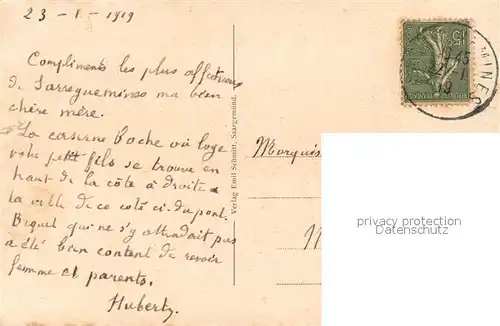 23 - 1 - 1919
Compliments les plus affectueux
de Sarreguemines ma bien
chère mère.
La caserne Boche où loge
votre petit fils se trouve en
haut de la côte à droite
la ville de ce côté ci du pont.
Biquel qui ne s'y attendait pas
a été bien content de revoir
femme et parents.
Hubert
Verlag Emil Schmitt, Saargemünd.
15c
MINES
Marquis
privacy protection
Datenschutz